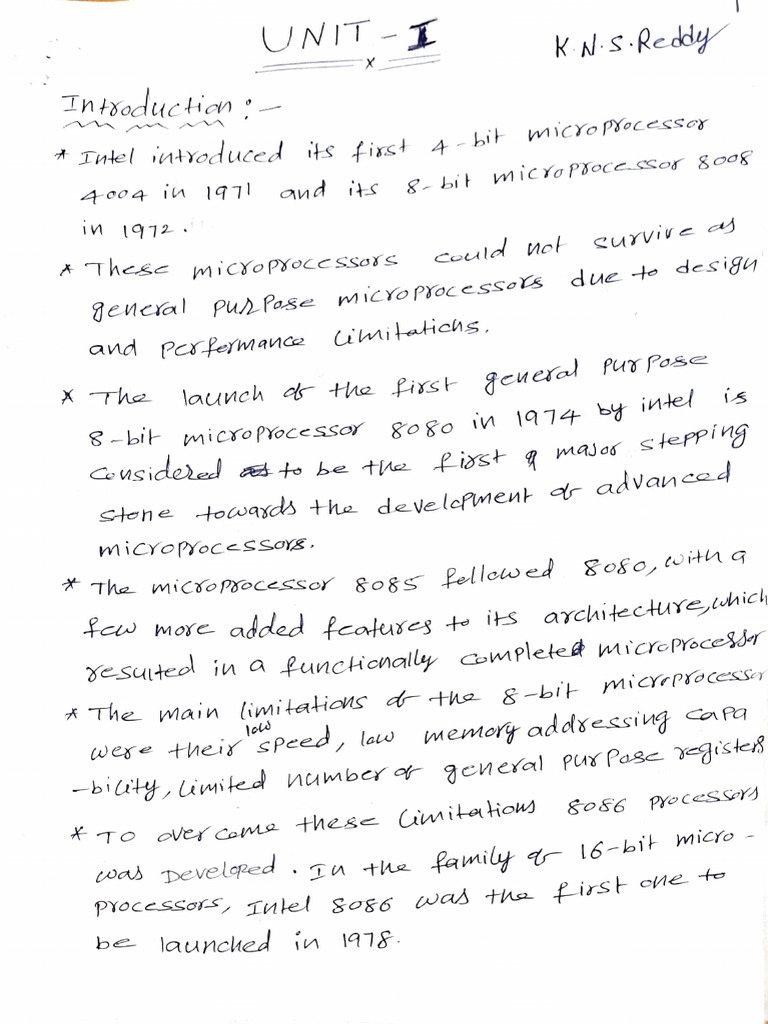 UNIT - I
K.N.S.Reddy
x
Introduction :-
* Intel introduced its first 4-bit microprocessor
4004 in 1971 and its 8-bit microprocessor 8008
in 1972.
* These microprocessors could not survive as
general purpose microprocessors due to design
and performance limitations.
* The launch of the first general purpose
8-bit microprocessor 8080 in 1974 by intel is
considered as to be the first major stepping
stone towards the development of advanced
microprocessors.
* The microprocessor 8085 followed 8080, with a
few more added features to its architecture, which
resulted in a functionally completed microprocessor
* The main limitations of the 8-bit microprocessor
were their low speed, low memory addressing capa
-bility, limited number of general purpose registers
* To over come these limitations 8086 processors
was Developed. In the family of 16-bit micro-
processors, Intel 8086 was the first one to
be launched in 1978.